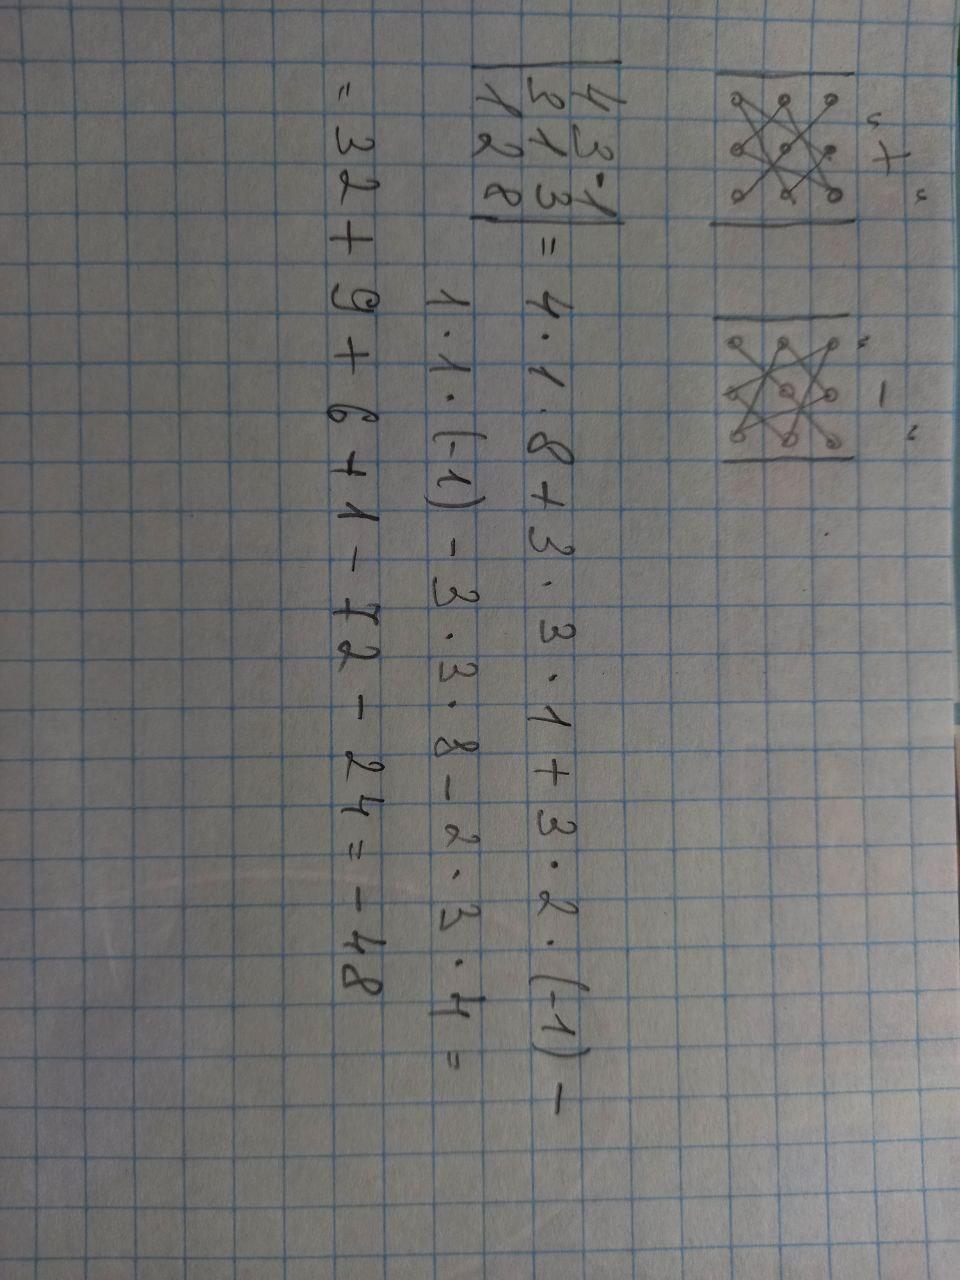 "+" "-"
| 4 3 -1 |
| 3 1 3 | = 4 · 1 · 8 + 3 · 3 · 1 + 3 · 2 · (-1) -
| 1 2 8 |
1 · 1 · (-1) - 3 · 3 · 8 - 2 · 3 · 4 =
= 32 + 9 + 6 + 1 - 72 - 24 = - 48